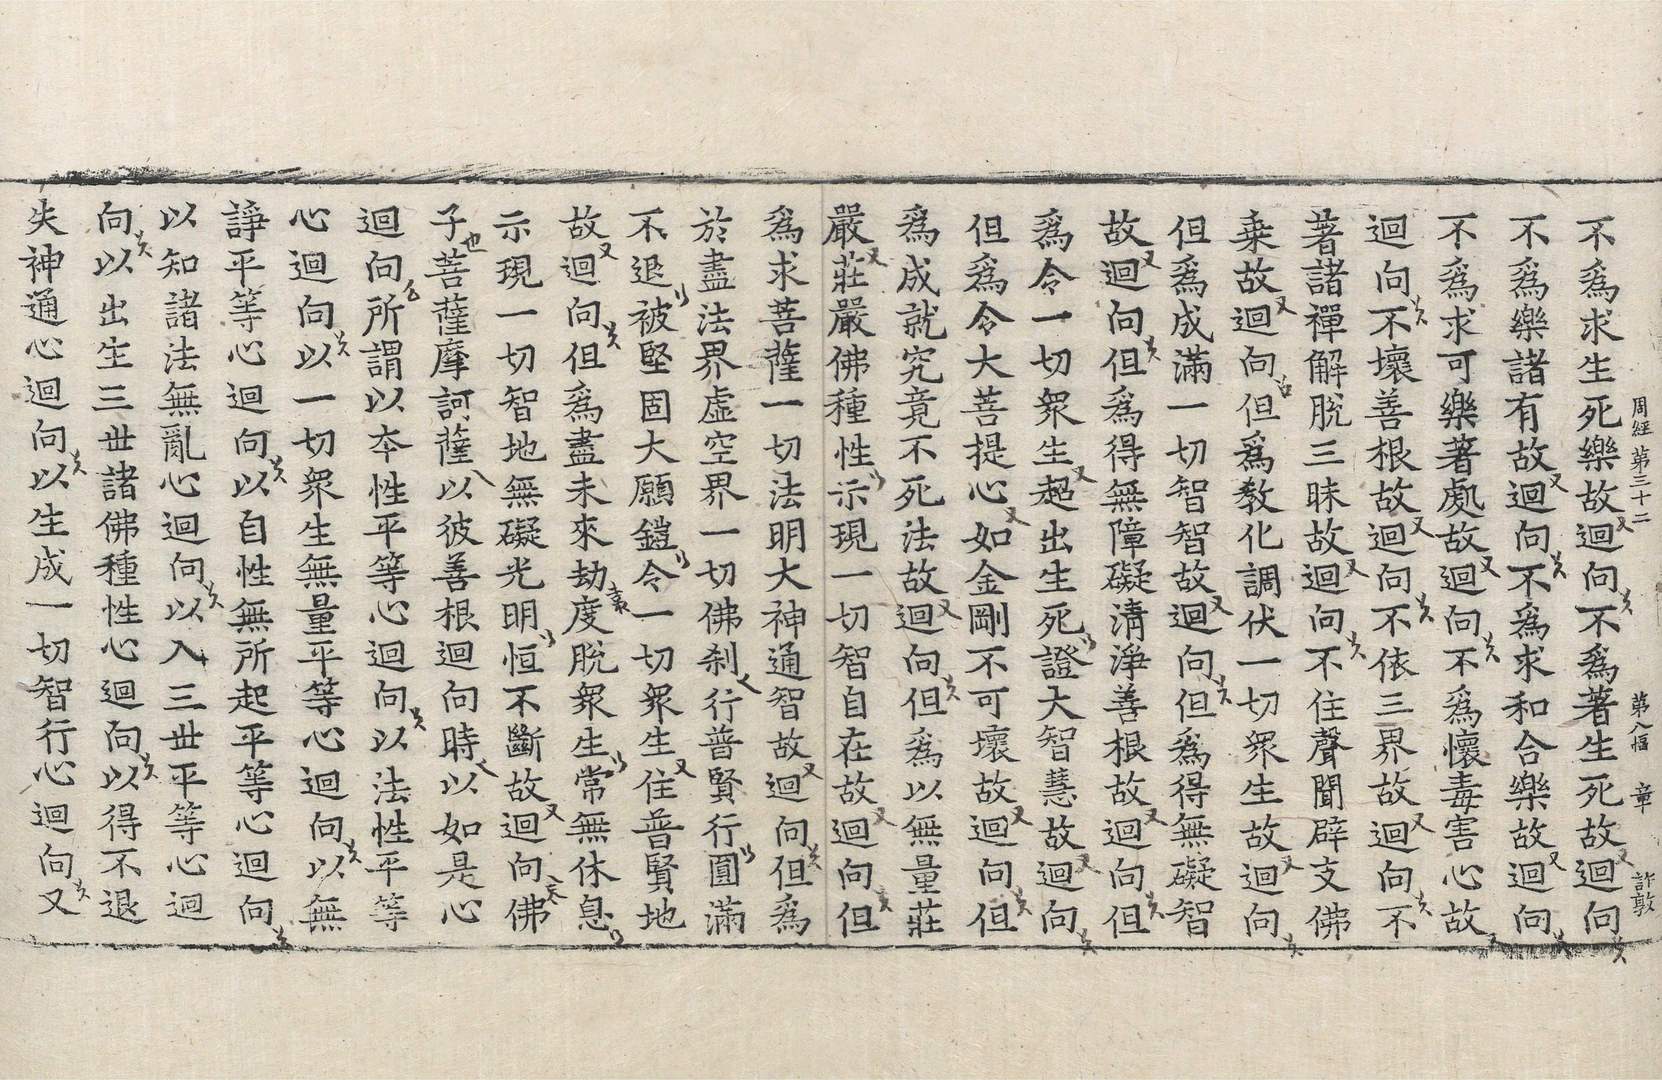 周經 第三十二 第八幅 章 許敦
不爲求生死樂故迴向不爲著生死故迴向
不爲樂諸有故迴向不爲求和合樂故迴向
不爲求可樂著處故迴向不爲懷毒害心故
迴向不壞善根故迴向不依三界故迴向不
著諸禪解脫三昧故迴向不住聲聞辟支佛
乗故迴向但爲敎化調伏一切衆生故迴向
但爲成滿一切智智故迴向但爲得無礙智
故迴向但爲得無障礙清淨善根故迴向但
爲令一切衆生超出生死證大智慧故迴向
但爲令大菩提心如金剛不可壞故迴向但
爲成就究竟不死法故迴向但爲以無量莊
嚴莊嚴佛種性示現一切智自在故迴向但
爲求菩薩一切法明大神通智故迴向但爲
於盡法界虛空界一切佛刹行普賢行圓滿
不退被堅固大願鎧令一切衆生住普賢地
故迴向但爲盡未來劫度脫衆生常無休息
示現一切智地無礙光明恒不斷故迴向佛
子菩薩摩訶薩以彼善根迴向時以如是心
迴向所謂以本性平等心迴向以法性平等
心迴向以一切衆生無量平等心迴向以無
諍平等心迴向以自性無所起平等心迴向
以知諸法無亂心迴向以入三世平等心迴
向以出生三世諸佛種性心迴向以得不退
失神通心迴向以生成一切智行心迴向又